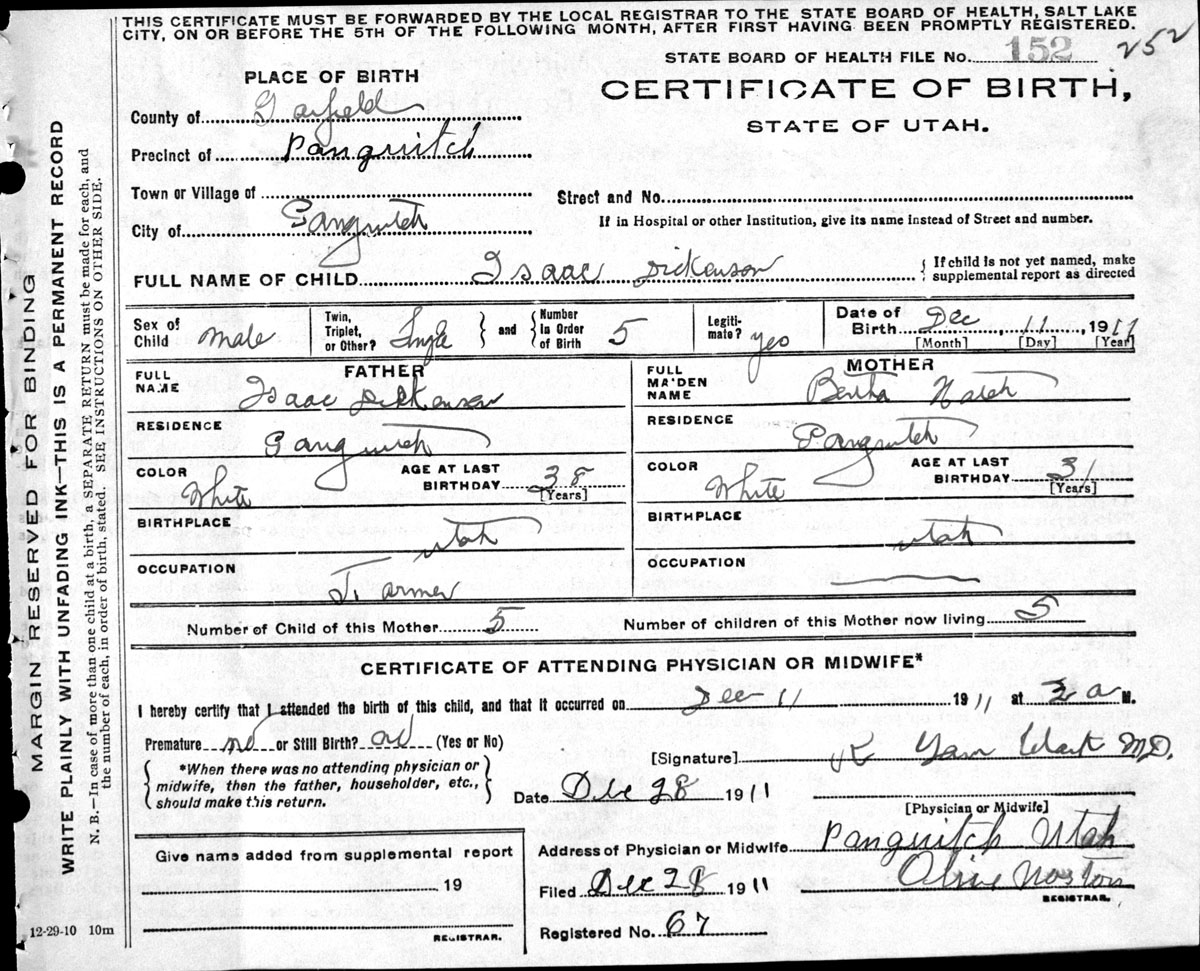 THIS CERTIFICATE MUST BE FORWARDED BY THE LOCAL REGISTRAR TO THE STATE BOARD OF HEALTH, SALT LAKE
CITY, ON OR BEFORE THE 5TH OF THE FOLLOWING MONTH, AFTER FIRST HAVING BEEN PROMPTLY REGISTERED.
STATE BOARD OF HEALTH FILE No. 152 252
PLACE OF BIRTH
CERTIFICATE OF BIRTH,
STATE OF UTAH.
County of Garfield
Precinct of Panguitch
Town or Village of
Street and No.
City of Panguitch
If in Hospital or other Institution, give its name instead of Street and number.
FULL NAME OF CHILD Isaac Dickenson
If child is not yet named, make
supplemental report as directed
Sex of Child Male
Twin, Triplet, or Other? Single
and Number in Order of Birth 5
Legitimate? yes
Date of Birth Dec 11 1911
[Month] [Day] [Year]
FATHER
FULL NAME Isaac Dickenson
RESIDENCE Panguitch
COLOR White
AGE AT LAST BIRTHDAY 38
[Years]
BIRTHPLACE Utah
OCCUPATION Farmer
MOTHER
FULL MAIDEN NAME Bertha
RESIDENCE Panguitch
COLOR White
AGE AT LAST BIRTHDAY 31
[Years]
BIRTHPLACE Utah
OCCUPATION
Number of Child of this Mother 5
Number of children of this Mother now living 5
CERTIFICATE OF ATTENDING PHYSICIAN OR MIDWIFE*
I hereby certify that I attended the birth of this child, and that it occurred on Dec 11 1911 at a M.
Premature no or Still Birth? no (Yes or No)
*When there was no attending physician or
midwife, then the father, householder, etc.,
should make this return.
[Signature] M.D.
Date Dec 28 1911
[Physician or Midwife]
Address of Physician or Midwife Panguitch Utah
Filed Dec 28 1911 Olive Norton
REGISTRAR.
Registered No. 67
Give name added from supplemental report
19
REGISTRAR.
12-29-10 10m
MARGIN RESERVED FOR BINDING
WRITE PLAINLY WITH UNFADING INK—THIS IS A PERMANENT RECORD
N. B.—In case of more than one child at a birth, a SEPARATE RETURN must be made for each, and
the number of each, in order of birth, stated. SEE INSTRUCTIONS ON OTHER SIDE.